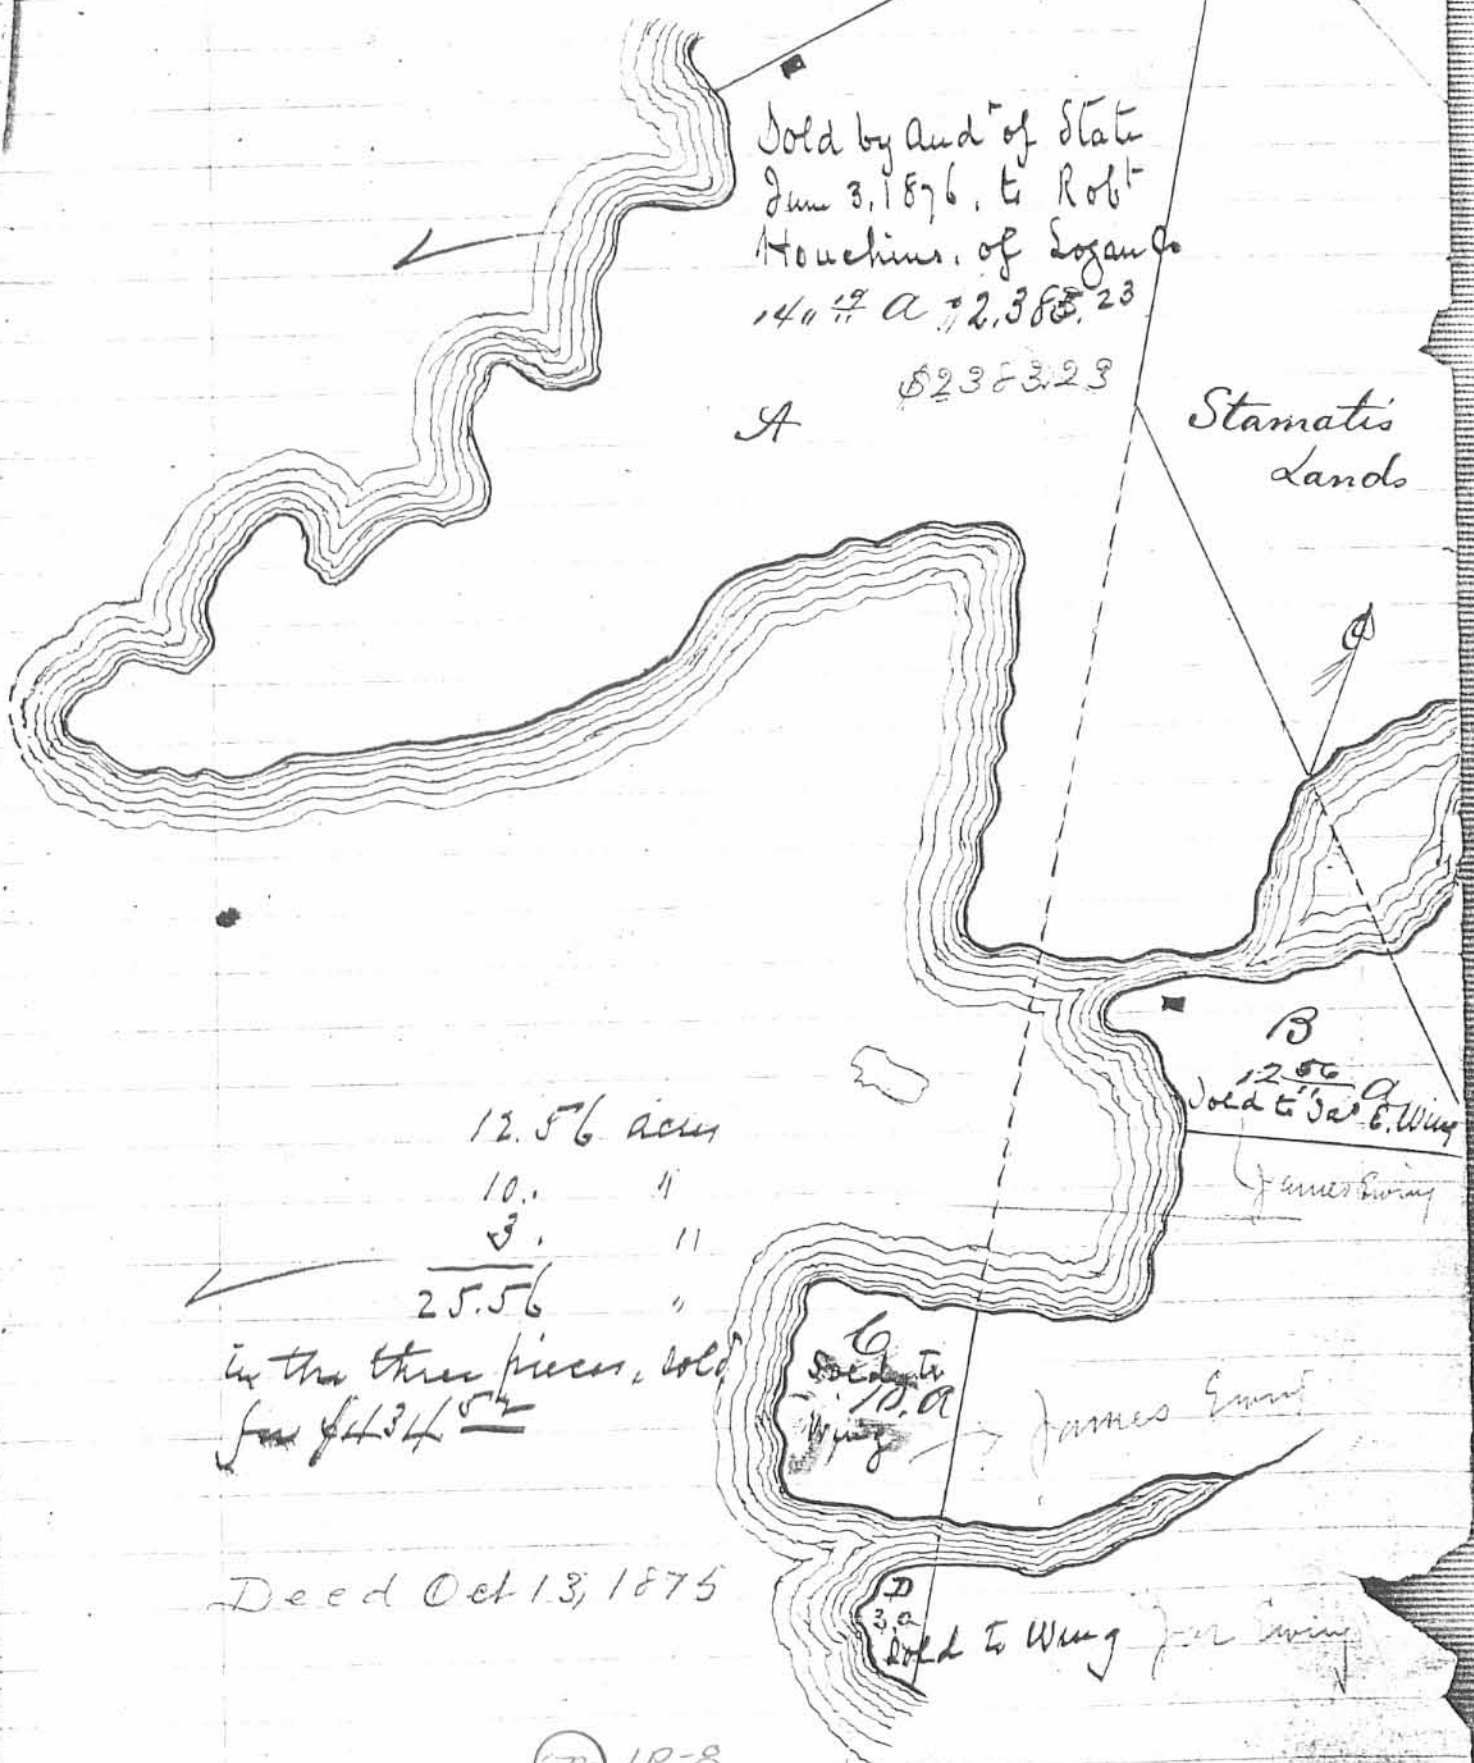 Sold by Aud^r of State
June 3, 1876, to Rob^t
Houchins, of Logan Co
$2383.23
A
Stamatis
Lands
B
12 56 a
Sold to Ja^s E. Wing
James Ewing
12.56 acres
10. "
3. "
25.56 "
in the three pieces, sold
for $434 52
C
Sold to
10. a
Wing
James Ewing
Deed Oct 13, 1875
D
3. a
Sold to Wing Ewing